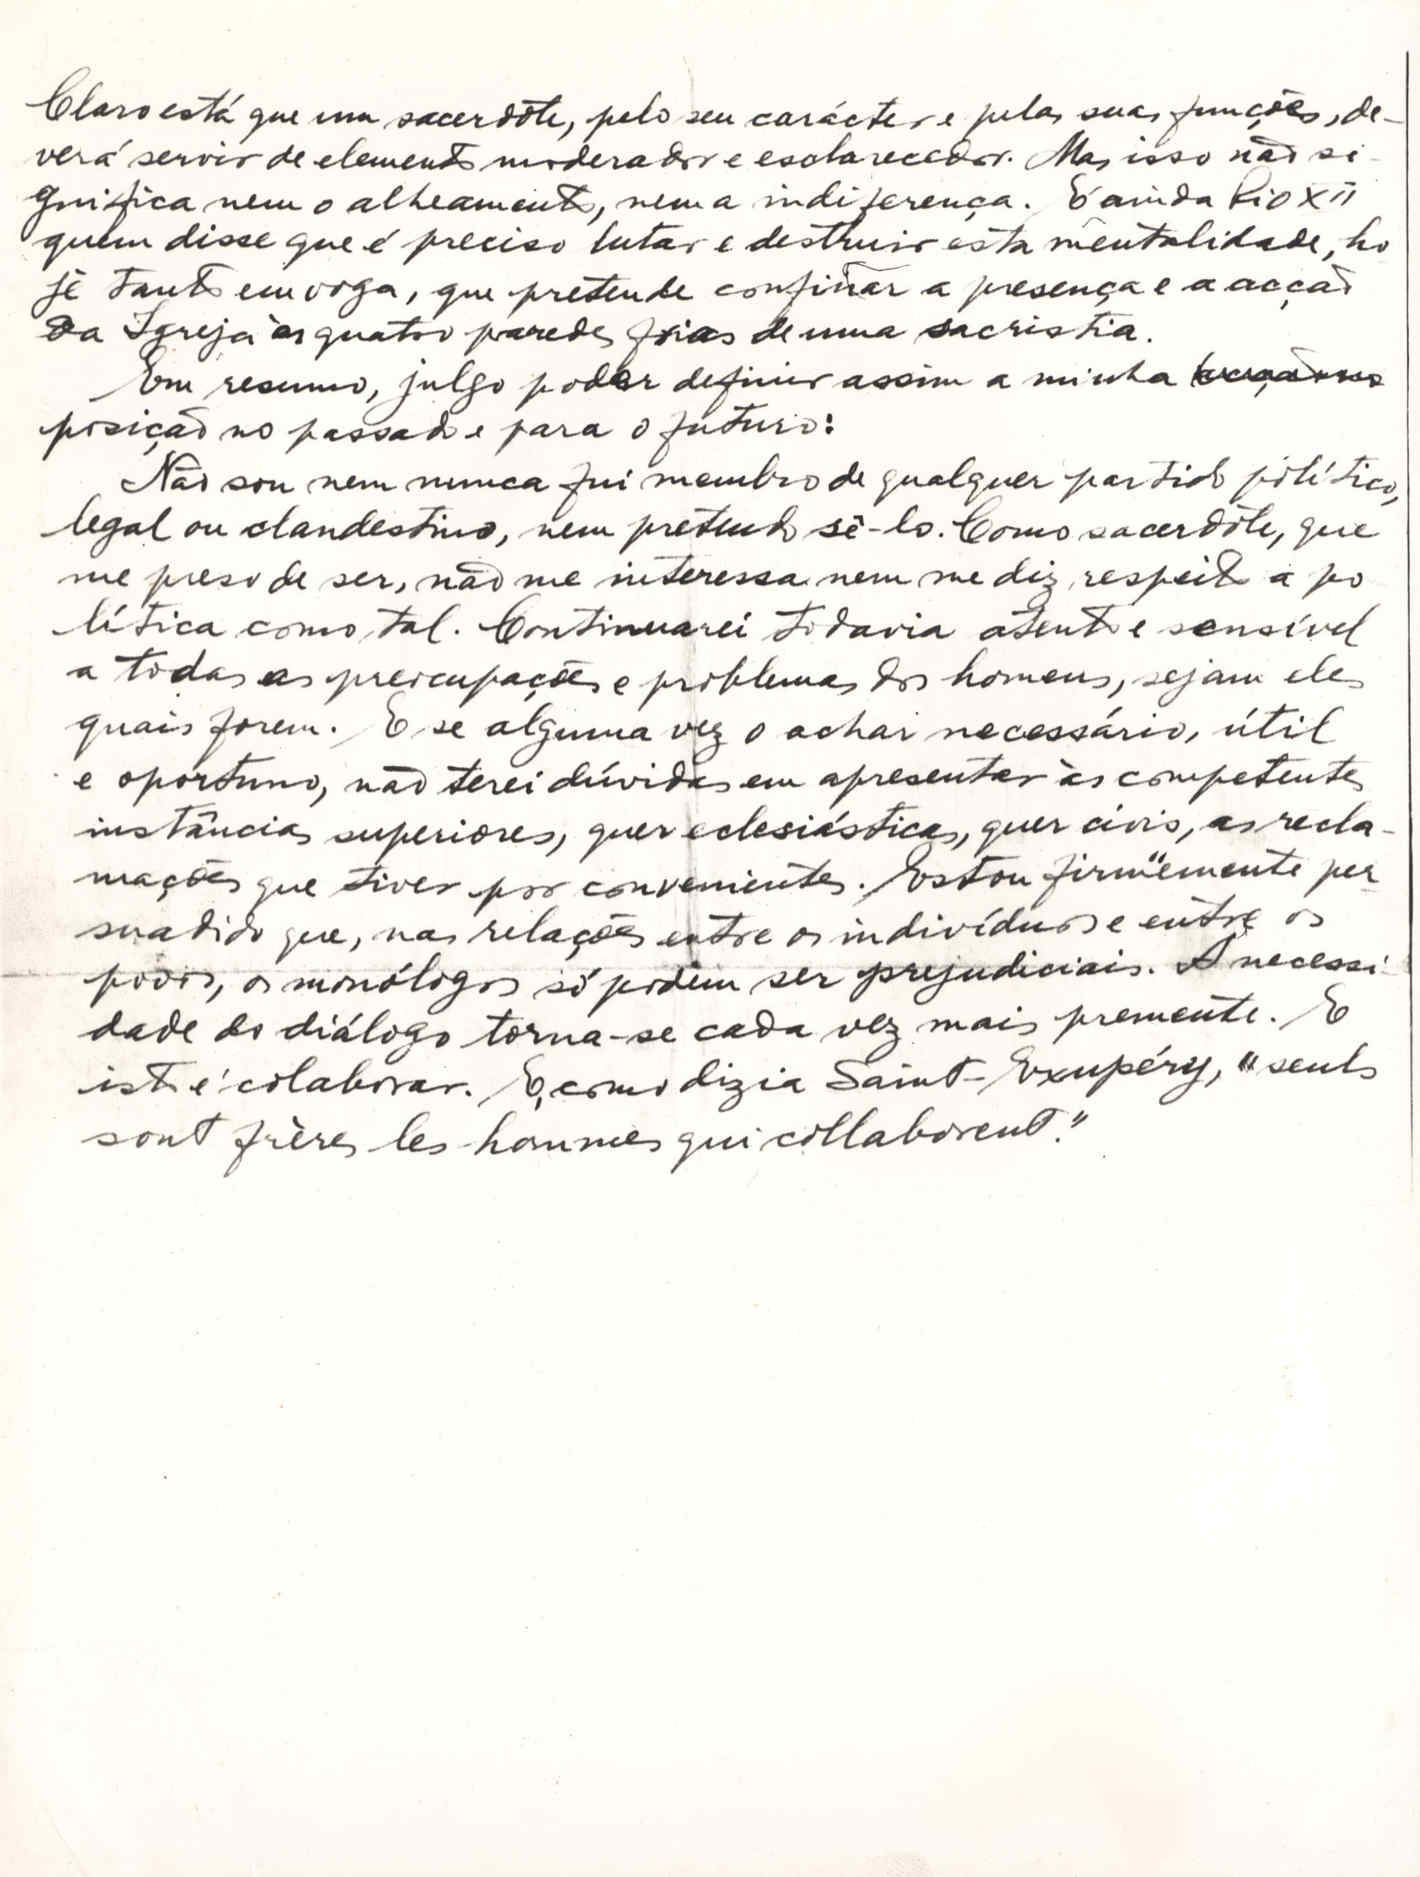 Claro está que um sacerdote, pelo seu carácter e pelas suas funções, de-
verá servir de elemento moderador e esclarecedor. Mas isso não si-
gnifica nem o alheamento, nem a indiferença. É ainda Pio XII
quem disse que é preciso lutar e destruir esta mentalidade, ho
je tanto em voga, que pretende confinar a presença e a acção
da Igreja às quatro paredes frias de uma sacristia.
Em resumo, julgo poder definir assim a minha
posição no passado e para o futuro:
Não sou nem nunca fui membro de qualquer partido político,
legal ou clandestino, nem pretendo sê-lo. Como sacerdote, que
me preso de ser, não me interessa nem me diz respeito a po
lítica como tal. Continuarei todavia atento e sensível
a todas as preocupações e problemas dos homens, sejam eles
quais forem. E se alguma vez o achar necessário, útil
e oportuno, não terei dúvidas em apresentar às competentes
instâncias superiores, quer eclesiásticas, quer civis, as recla-
mações que tiver por convenientes. Estou firmemente per-
suadido que, nas relações entre os indivíduos e entre os
povos, os monólogos só podem ser prejudiciais. A necessi-
dade do diálogo torna-se cada vez mais premente. E
isto é colaborar. E, como dizia Saint-Exupéry, "seuls
sont frères les hommes qui collaborent."